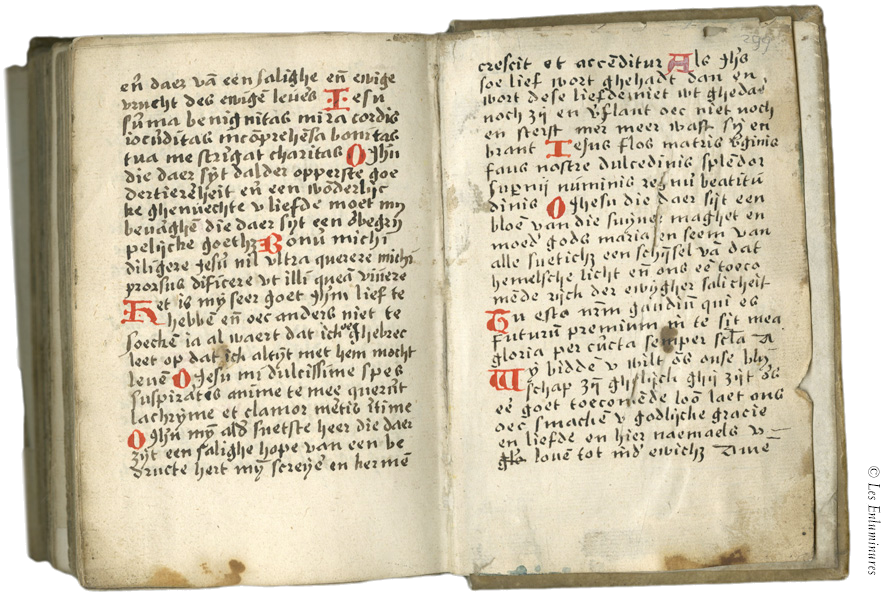 en̄ daer vā een salighe en̄ ewige
vrucht des ewigē leuēs Iesu
sūma benignitas mira cordis
iocūditas incōprehēsa bonitas
tua me strīgat charitas O Ihū
die daer sijt dalder opperste goe
dertierēheit en̄ een wōderlijc
ke ghenuechte v liefde moet mij
beuāghē die daer sijt een ōbegrij
pelijcke goethz Bonū michi
diligere Jesū nil vltra querere michi
prorsus dificere vt illi queā viuere
Het is mij seer goet Ihm̄ lief te
hebbēn en̄ oec anders niet te
soeckēn ia al waert dat ick ghebrec
leet op dat ick altijt met hem mocht
leuēn O Jesu mi dulcissime spes
suspirātis anime te mee querūt
lachryme et clamor mētis ītime
O Ihū mijn alder suetste heer die daer
zijt een salighe hope van een be
dructe hert mijn screijē en kermē
299
crescit et accēditur Als Ihūs
soe lief wort ghehadt dan en
wort dese liefde niet wt ghedaē
noch zij en vflaut oec niet noch
en sterft mer meer wast sij en
brant Iesus flos matris vginis
faus nostre dulcedinis splēdor
supnij numinis regnū beatitū
dinis O Ghesu die daer sijt een
bloē van die suijue maghet en
moed gods maria en seem van
alle suetichz een schijnsel vā dat
hemelsche licht en̄ ons eē toeco
mēde rijck der ewigher salicheit
Tu esto nr̄m gaudiū qui es
futurum premium in te sit mea
gloria per cūcta semper scl̄a A
Wij biddē v wilt ōs onse blij
schap zijn ghelijck ghij zijt ōs
eē goet toecomēde loō laet ons
oec smackē v godlijcke gracie
en liefde en hier naemaels v
glo louē tot ī d ewichz Amē
© Les Enluminures